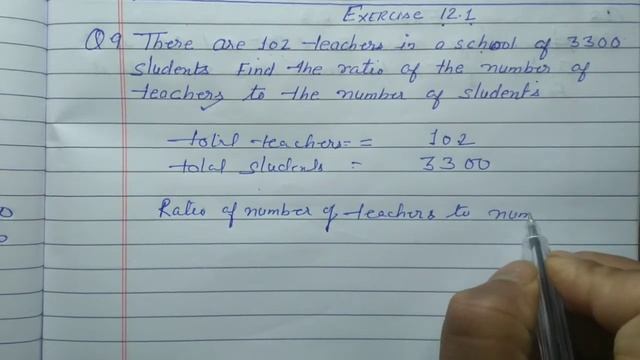 Exercise 12.1
Q9 There are 102 teachers in a school of 3300
students Find the ratio of the number of
teachers to the number of students
total teachers = 102
total students = 3300
Ratio of number of teachers to num